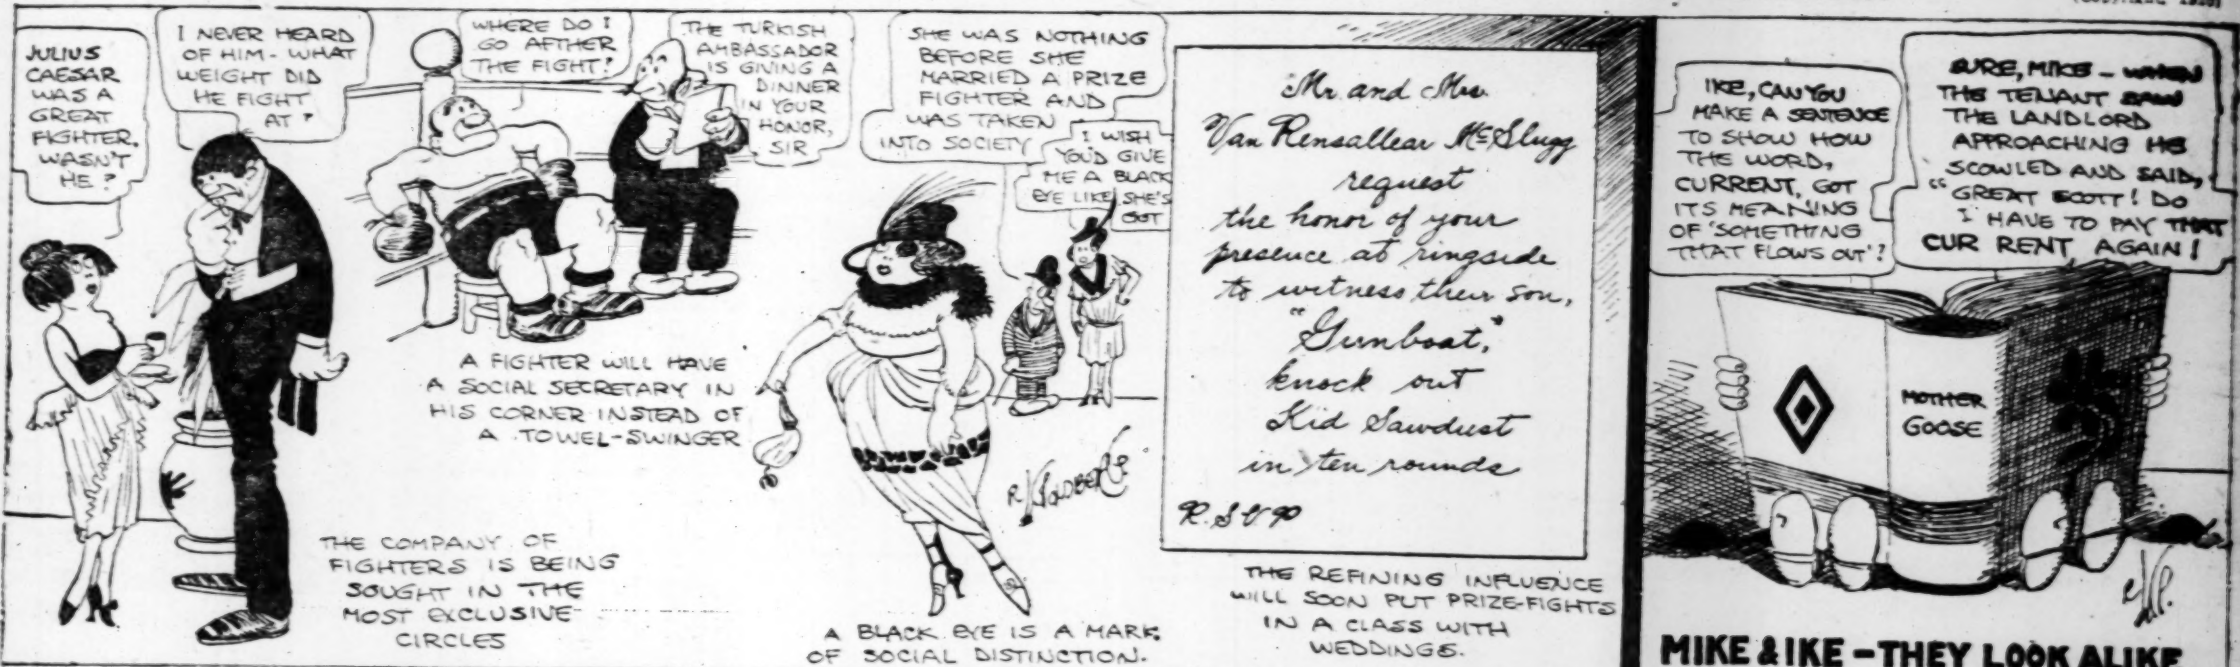 JULIUS
CAESAR
WAS A
GREAT
FIGHTER.
WASN'T
HE?
I NEVER HEARD
OF HIM - WHAT
WEIGHT DID
HE FIGHT
AT?
THE COMPANY OF
FIGHTERS IS BEING
SOUGHT IN THE
MOST EXCLUSIVE
CIRCLES
WHERE DO I
GO AFTHER
THE FIGHT?
THE TURKISH
AMBASSADOR
IS GIVING A
DINNER
IN YOUR
HONOR,
SIR
A FIGHTER WILL HAVE
A SOCIAL SECRETARY IN
HIS CORNER INSTEAD OF
A TOWEL-SWINGER
SHE WAS NOTHING
BEFORE SHE
MARRIED A PRIZE
FIGHTER AND
WAS TAKEN
INTO SOCIETY
I WISH
YOU'D GIVE
ME A BLACK
EYE LIKE SHE'S
GOT
R. GOLDBERG
A BLACK EYE IS A MARK
OF SOCIAL DISTINCTION.
Mr. and Mrs.
Van Rensallear McSlugg
request
the honor of your
presence at ringside
to witness their son,
"Gunboat,"
knock out
Kid Sawdust
in ten rounds
R.S.V.P
THE REFINING INFLUENCE
WILL SOON PUT PRIZE-FIGHTS
IN A CLASS WITH
WEDDINGS.
IKE, CAN YOU
MAKE A SENTENCE
TO SHOW HOW
THE WORD,
CURRENT, GOT
ITS MEANING
OF 'SOMETHING
THAT FLOWS OUT'?
SURE, MIKE - WHEN
THE TENANT SAW
THE LANDLORD
APPROACHING HE
SCOWLED AND SAID,
"GREAT SCOTT! DO
I HAVE TO PAY THAT
CUR RENT AGAIN!
MOTHER
GOOSE
MIKE & IKE - THEY LOOK ALIKE